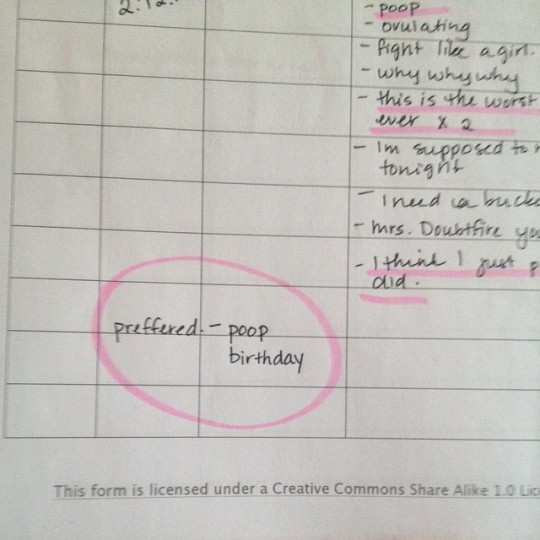 2:12
- poop
- ovulating
- fight like a girl.
- why why why
- this is the worst
ever x 2
- Im supposed to
tonight
- I need a
- Mrs. Doubtfire
- I think I just
did.
preffered. - poop
birthday
This form is licensed under a Creative Commons Share Alike 1.0